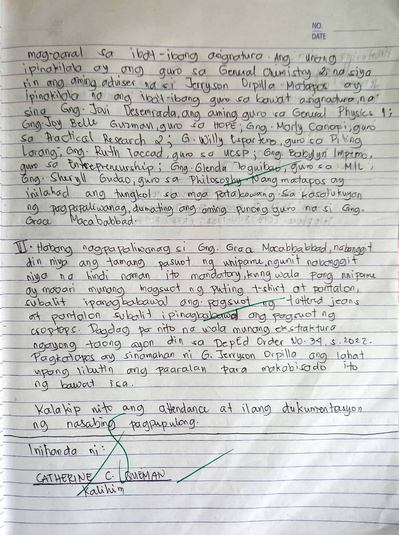 NO.
DATE
mag-aaral sa ibat-ibang asignatura. Ang unang
ipinakilala ay ang guro sa General Chemistry 2, na siya
rin ang aming adviser na si Jerryson Orpilla. Matapos ay
ipinakilala na ang ibat-ibang guro sa bawat asignatura, na
sina Gng. Javi Desemrada, ang aming guro sa General Physics 1;
Gng. Joy Belle Guzman, guro sa HOPE; Gng. Marly Canapi, guro
sa Practical Research 2; G. Willy Espartero, guro sa Piling
Larang; Gng. Ruth Taccad, guro sa UCSP; Gng. Babylyn Imperio,
guro sa Entrepreneurship; Gng. Glenda Daguibao, guro sa MIL;
Gng. Sheryll Oudao, guro sa Philosophy. Nang matapos ay
inilahad ang tungkol sa mga patakarang. Sa kasulukuyan
ng pagpapaliwanag, dumating ang aming punong guro na si Gng.
Grace Macababbad.
II. Habang nagpapaliwanag si Gng. Grace Macabbabbad, nabanggit
din niya ang tamang pasuot ng unipame, ngunit nabanggit
niya na hindi naman ito mandatory, kung wala pang unipame
ay maaari munang magsuot ng puting t-shirt at pantalon,
subalit ipanagbabawal ang pagsuot ng tattered jeans
at pantalon subalit ipinagbabawal ang pagsuot ng
croptops. Dagdag pa rito na wala munang ekstraktura
ngayong taong ayon din sa DepEd Order No. 34, s. 2022.
Pagkatapos ay sinamahan ni G. Jerryson Orpilla ang lahat
upang libutin ang paaralan para makabisado ito
ng bawat isa.
Kalakip nito ang attendance at ilang dukumentasyon
ng nasabing pagpupulong.
Inihanda ni:
CATHERINE C.
Kalihim